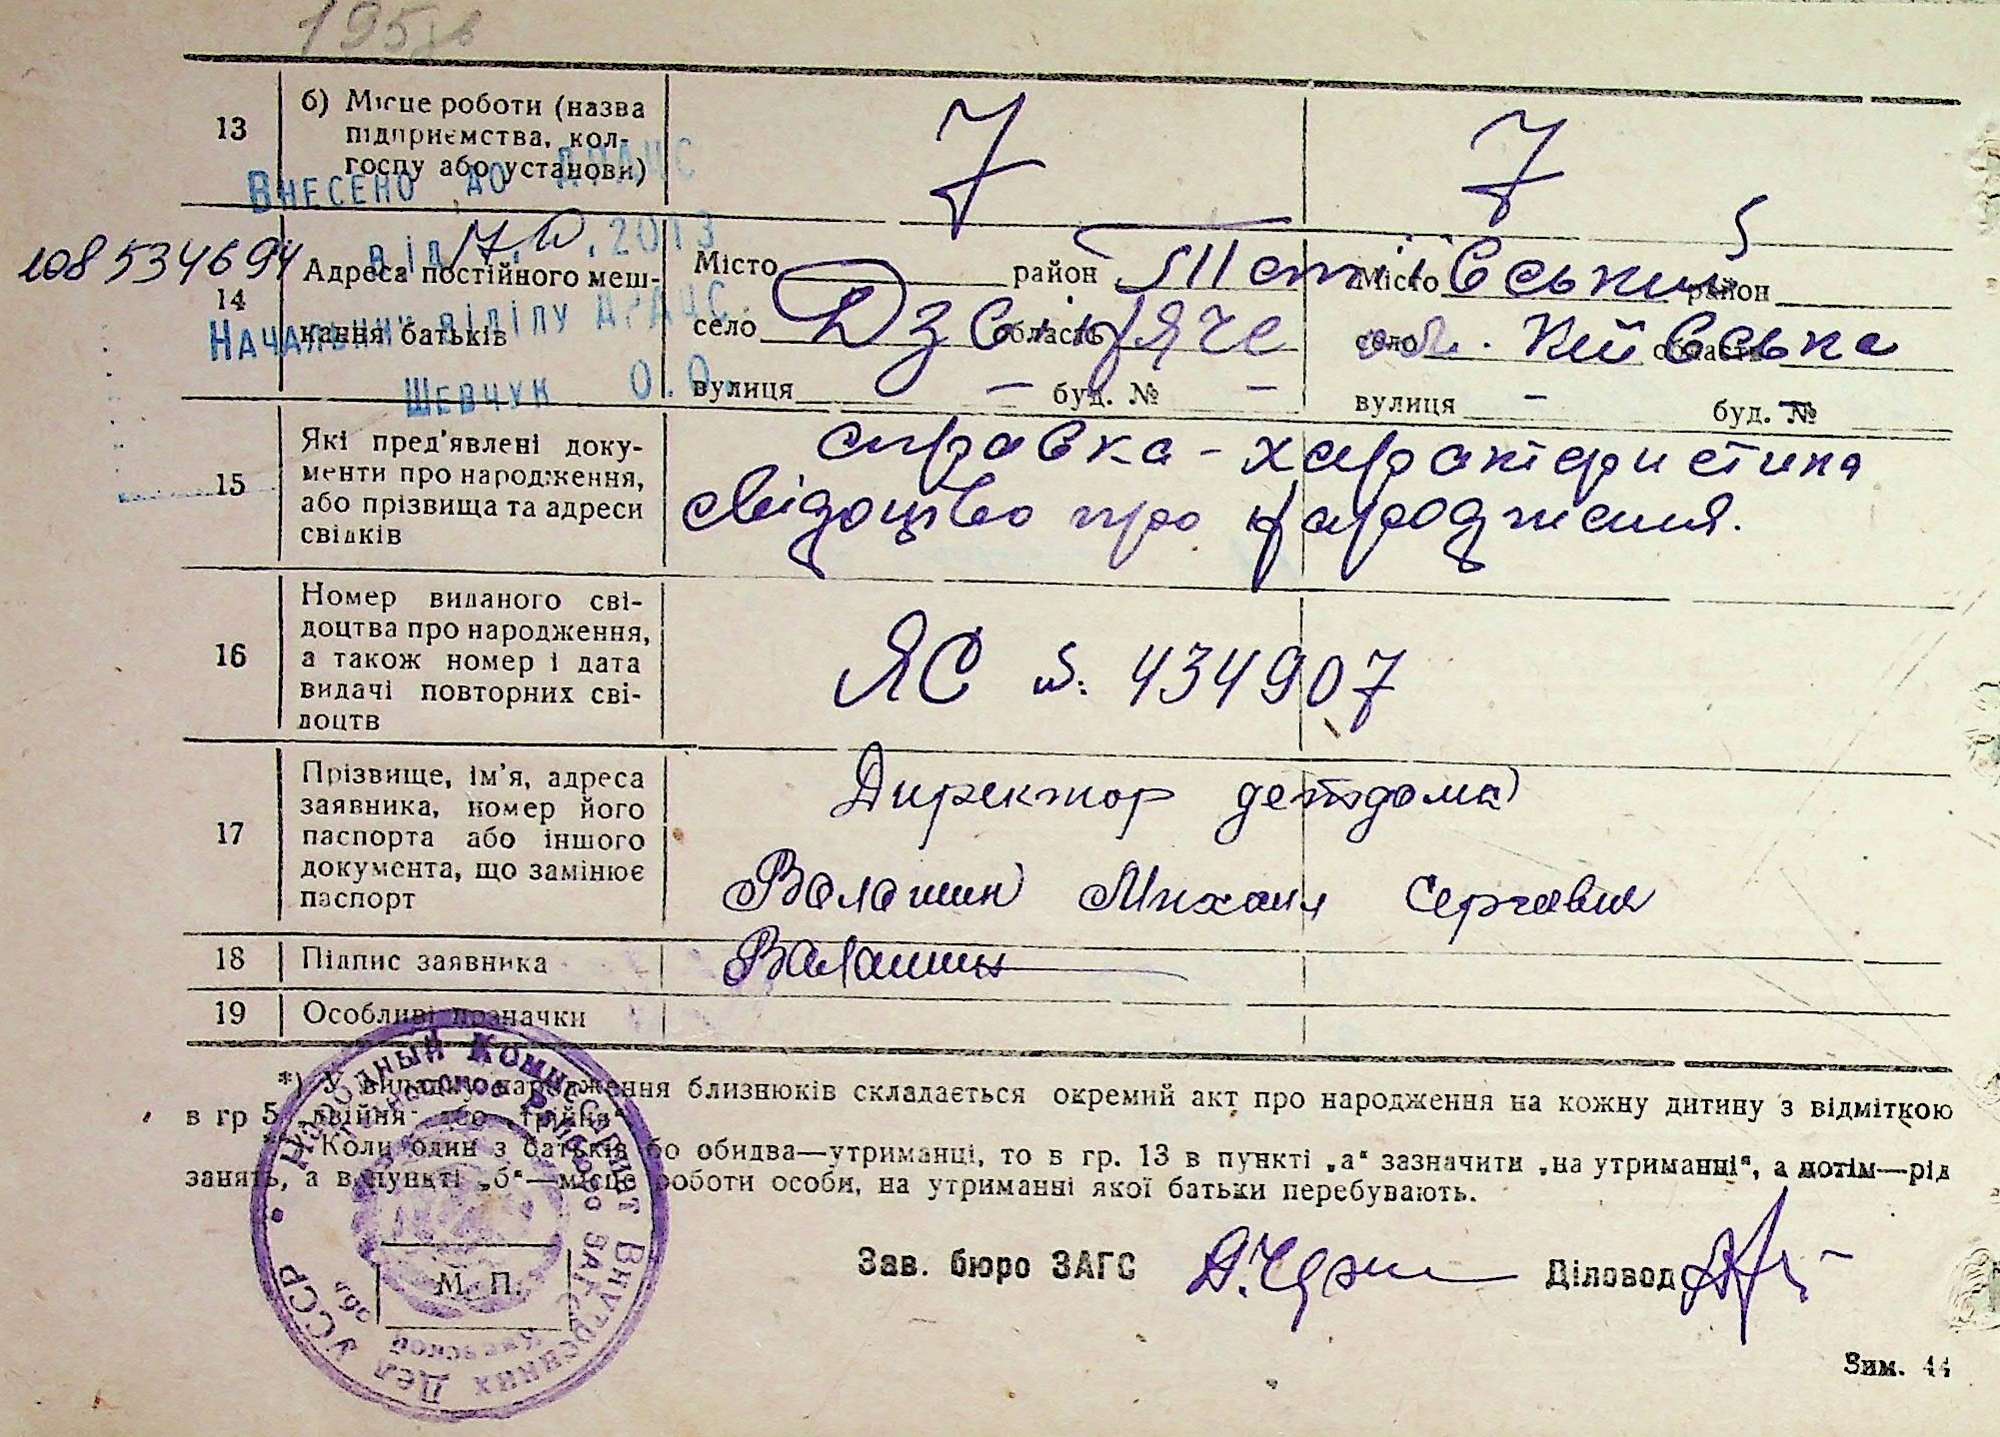 195
13
б) Місце роботи (назва
підприємства, кол-
госпу або установи)
7
7
Внесено до ДРАЦС
від 17. .2013
Начальник відділу ДРАЦС
Шевчук О.О.
108534694
14
Адреса постійного меш-
кання батьків
Місто район Тетіївський
село Дзвіняче область
вулиця — буд. № —
Місто район
село обл. Київська область
вулиця — буд. № —
15
Які пред'явлені доку-
менти про народження,
або прізвища та адреси
свідків
справка - характеристика
свідоцтво про народження.
16
Номер виданого сві-
доцтва про народження,
а також номер і дата
видачі повторних сві-
доцтв
ЯС №. 434907
17
Прізвище, ім'я, адреса
заявника, номер його
паспорта або іншого
документа, що замінює
паспорт
Директор детдома
Валашин Михаил Сергеевич
18
Підпис заявника
Валашин
19
Особливі позначки
*) У випадку народження близнюків складається окремий акт про народження на кожну дитину з відміткою
в гр 5 „двійня" або „трійня".
Коли один з батьків або обидва—утриманці, то в гр. 13 в пункті „а" зазначити „на утриманні", а потім—рід
занять, а в пункті „б"—місце роботи особи, на утриманні якої батьки перебувають.
Народный Комиссариат Внутренних Дел УССР
бюро ЗАГС
Киевской обл
М. П.
Зав. бюро ЗАГС
Діловод
Зим. 44